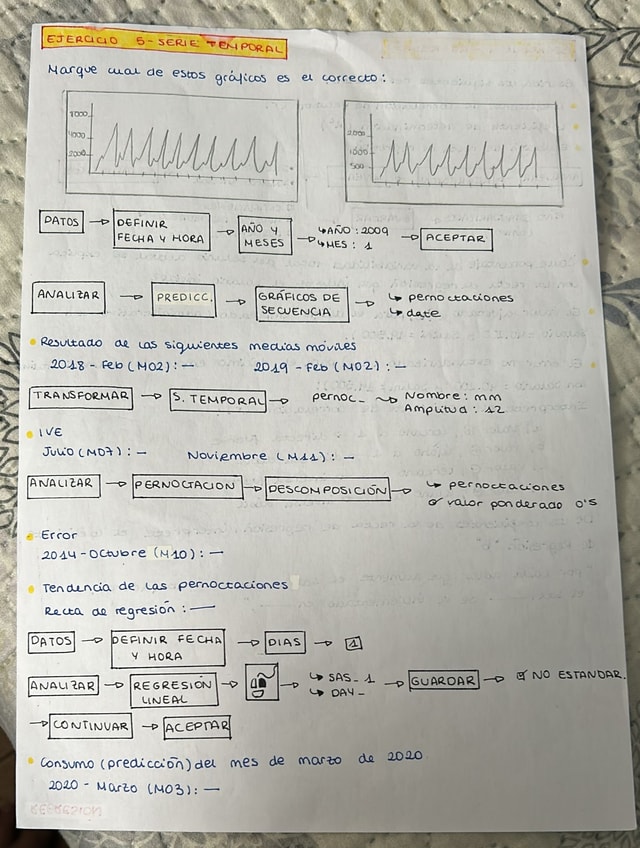 EJERCICIO 5 - SERIE TEMPORAL
Marque cual de estos gráficos es el correcto:
4000
2000
2000
1000
500
DATOS → DEFINIR FECHA Y HORA → AÑO Y MESES → ↳ AÑO : 2009 ↳ MES : 1 → ACEPTAR
ANALIZAR → PREDICC. → GRÁFICOS DE SECUENCIA → ↳ pernoctaciones ↳ date
• Resultado de las siguientes medias móviles
2018 - Feb (M02) : — 2019 - Feb (M02) : —
TRANSFORMAR → S. TEMPORAL → pernoc_ ⤳ Nombre : mm Amplitud : 12
• IVE
Julio (M07) : — Noviembre (M11) : —
ANALIZAR → PERNOCTACION → DESCOMPOSICIÓN → ↳ pernoctaciones ☑ valor ponderado 0'5
• Error
2014 - Octubre (M10) : —
• Tendencia de las pernoctaciones
Recta de regresión : —
DATOS → DEFINIR FECHA Y HORA → DIAS → 1
ANALIZAR → REGRESIÓN LINEAL → → ↳ SAS_1 ↳ DAY_ → GUARDAR → ☑ NO ESTANDAR.
→ CONTINUAR → ACEPTAR
• Consumo (predicción) del mes de marzo de 2020
2020 - Marzo (M03) : —